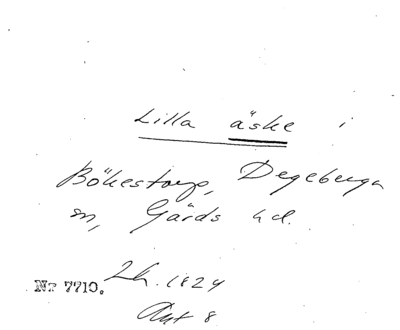 Lilla äske i
Bökestorp, Degeberga
sn, Gärds hd.
Nr 7710. Lh. 1824
Ant 8